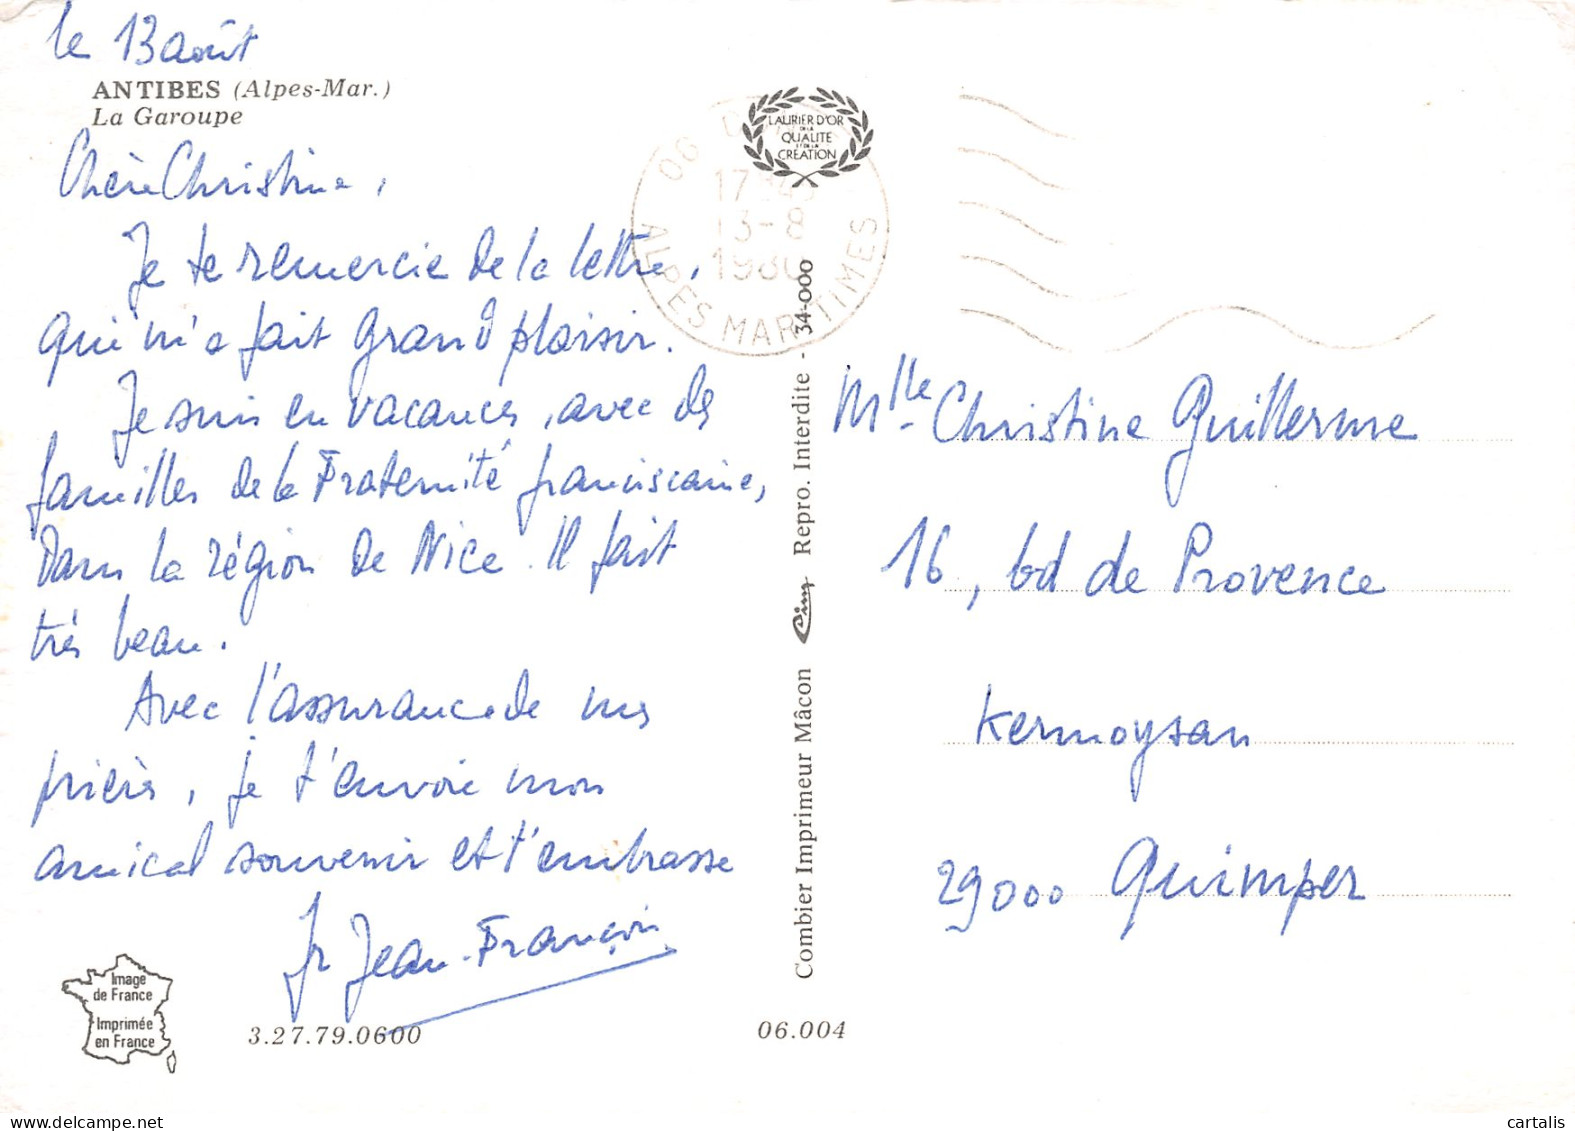 le 13 août
ANTIBES (Alpes-Mar.)
La Garoupe
Chère Christine,
Je te remercie de la lettre,
qui m'a fait grand plaisir.
Je suis en vacances, avec des
familles de la Fraternité franciscaine,
dans la région de Nice. Il fait
très beau.
Avec l'assurance de mes
prières, je t'envoie mon
amical souvenir et t'embrasse
fr Jean-François
Image
de France
Imprimée
en France
3.27.79.0600
06.004
LAURIER D'OR
DE LA
QUALITE
ET DE LA
CREATION
06
13-8
ALPES MARITIMES
Combier Imprimeur Mâcon Cim Repro. Interdite - 34-000
Mlle Christine Guillerme
16, bd de Provence
Kermoysan
29000 Quimper
cartalis